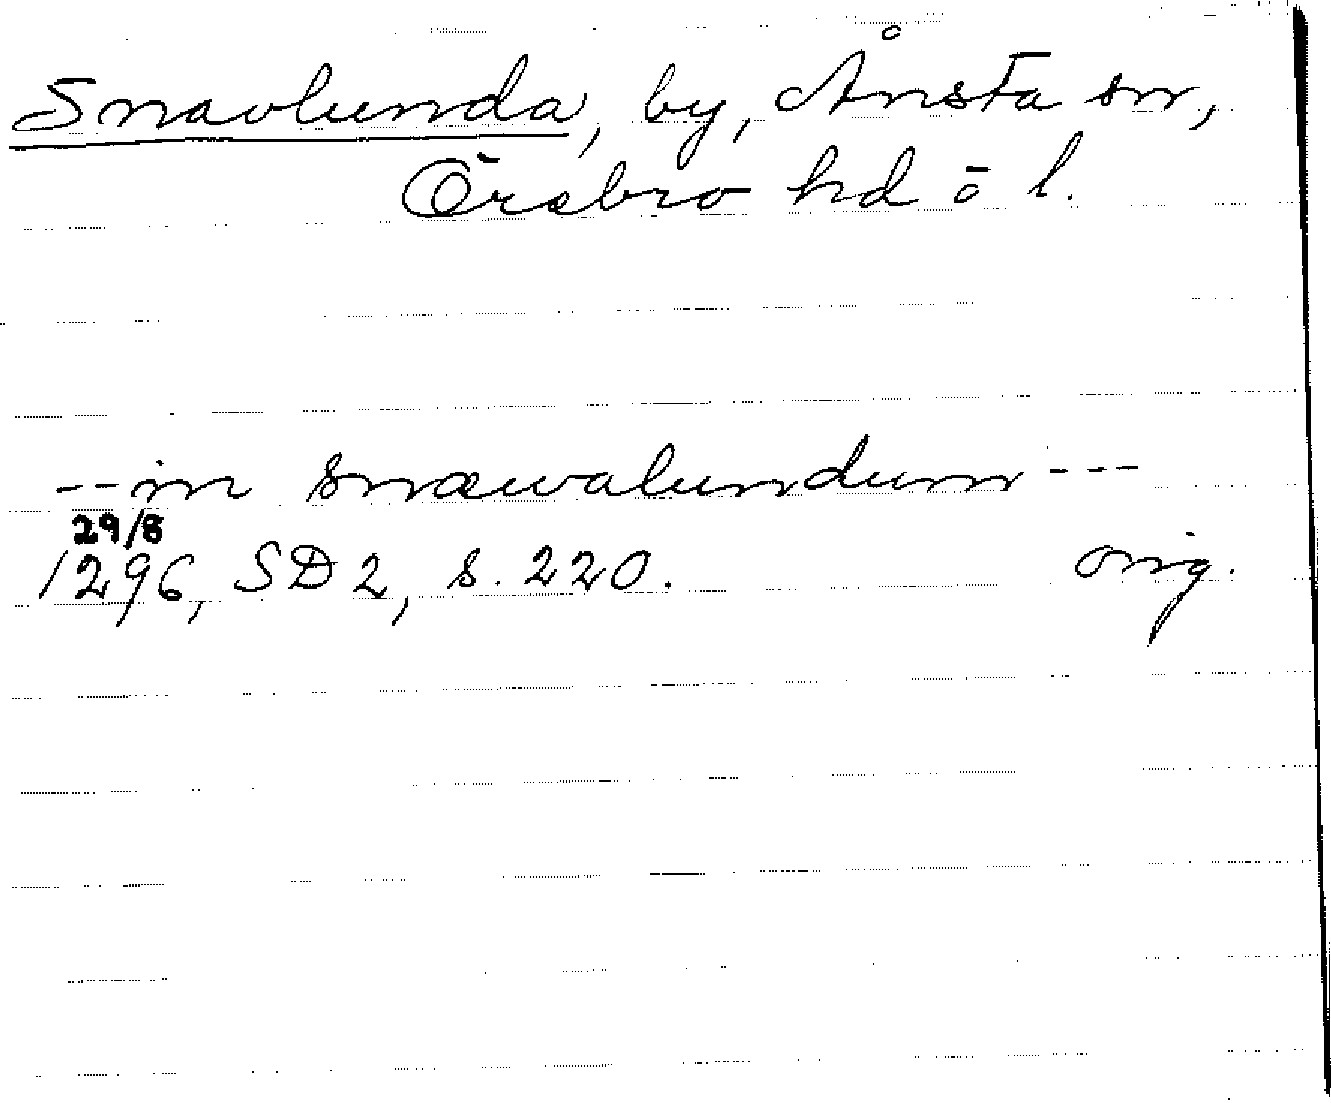 Snavlunda, by, Ånsta sn,
Örebro hd o l.
-- in snæwalundum ---
29/8
1296, SD 2, s. 220. orig.